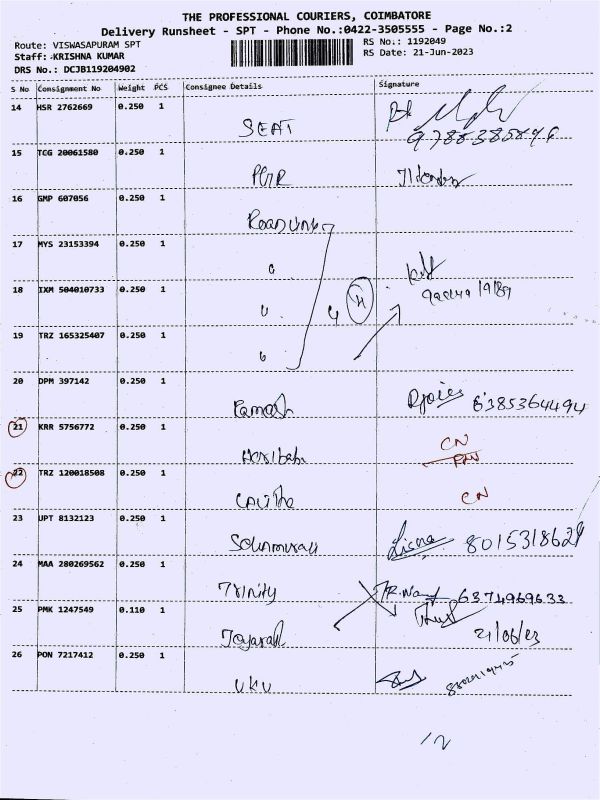 THE PROFESSIONAL COURIERS, COIMBATORE
Delivery Runsheet - SPT - Phone No.:0422-3505555 - Page No.:2
Route: VISWASAPURAM SPT
RS No.: 1192049
Staff: KRISHNA KUMAR
RS Date: 21-Jun-2023
DRS No.: DCJB119204902
S No Consignment No Weight PCS Consignee Details Signature
14 HSR 2762669 0.250 1
SEAT
9788385846
15 TCG 20061580 0.250 1
16 GMP 607056 0.250 1
17 MYS 23153394 0.250 1
18 IXM 504010733 0.250 1
4 H
19 TRZ 165325407 0.250 1
20 DPM 397142 0.250 1
Ramesh 6385364494
21 KRR 5756772 0.250 1
Haribabu CN
22 TRZ 120018508 0.250 1
Lalitha CN
23 UPT 8132123 0.250 1
8015318629
24 MAA 280269562 0.250 1
Trinity 6374969633
25 PMK 1247549 0.110 1
Jayarah 21/06/23
26 PON 7217412 0.250 1
VKV
12